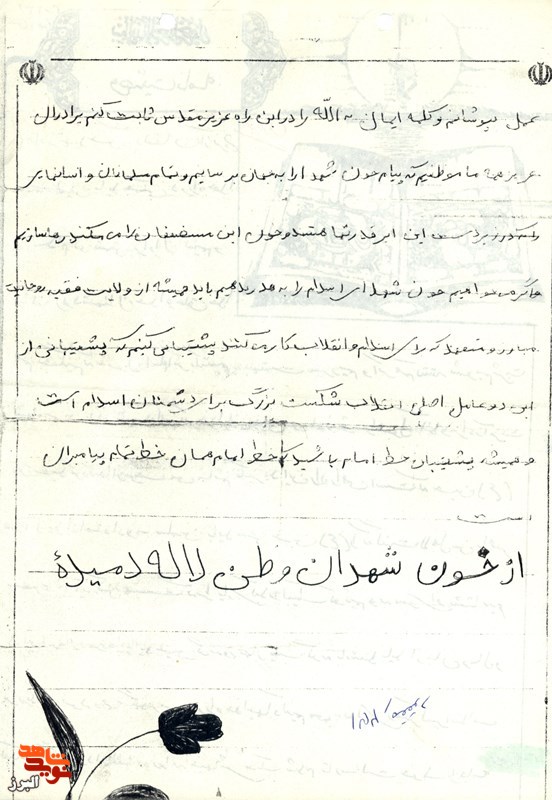 عمل بپوشانم و کلمه ایمان به الله را در این راه عزیز مقدس ثابت کنم برادران
عزیز همه ما موظفیم که پیام خون شهدا را به جهان برسانیم و تمام مسلمانان و انسانهای
را که در زیر دست این ابرقدرتها هستند و خون این مستضعفان را می مکند رها سازیم
و اگر می خواهیم خون شهدای اسلام را به هدر ندهیم باید همیشه از ولایت فقیه روحانیت
مبارز و متعهد که برای اسلام و انقلاب کار می کنند پشتیبانی کنیم که پشتیبانی از
این دو عامل اصلی انقلاب شکست بزرگ برای دشمنان اسلام است
و همیشه پشتیبان خط امام باشید که خط امام همان خط تمام پیامبران
است
از خون شهدان وطن لاله دمیدۀ
نوید شاهد
البرز